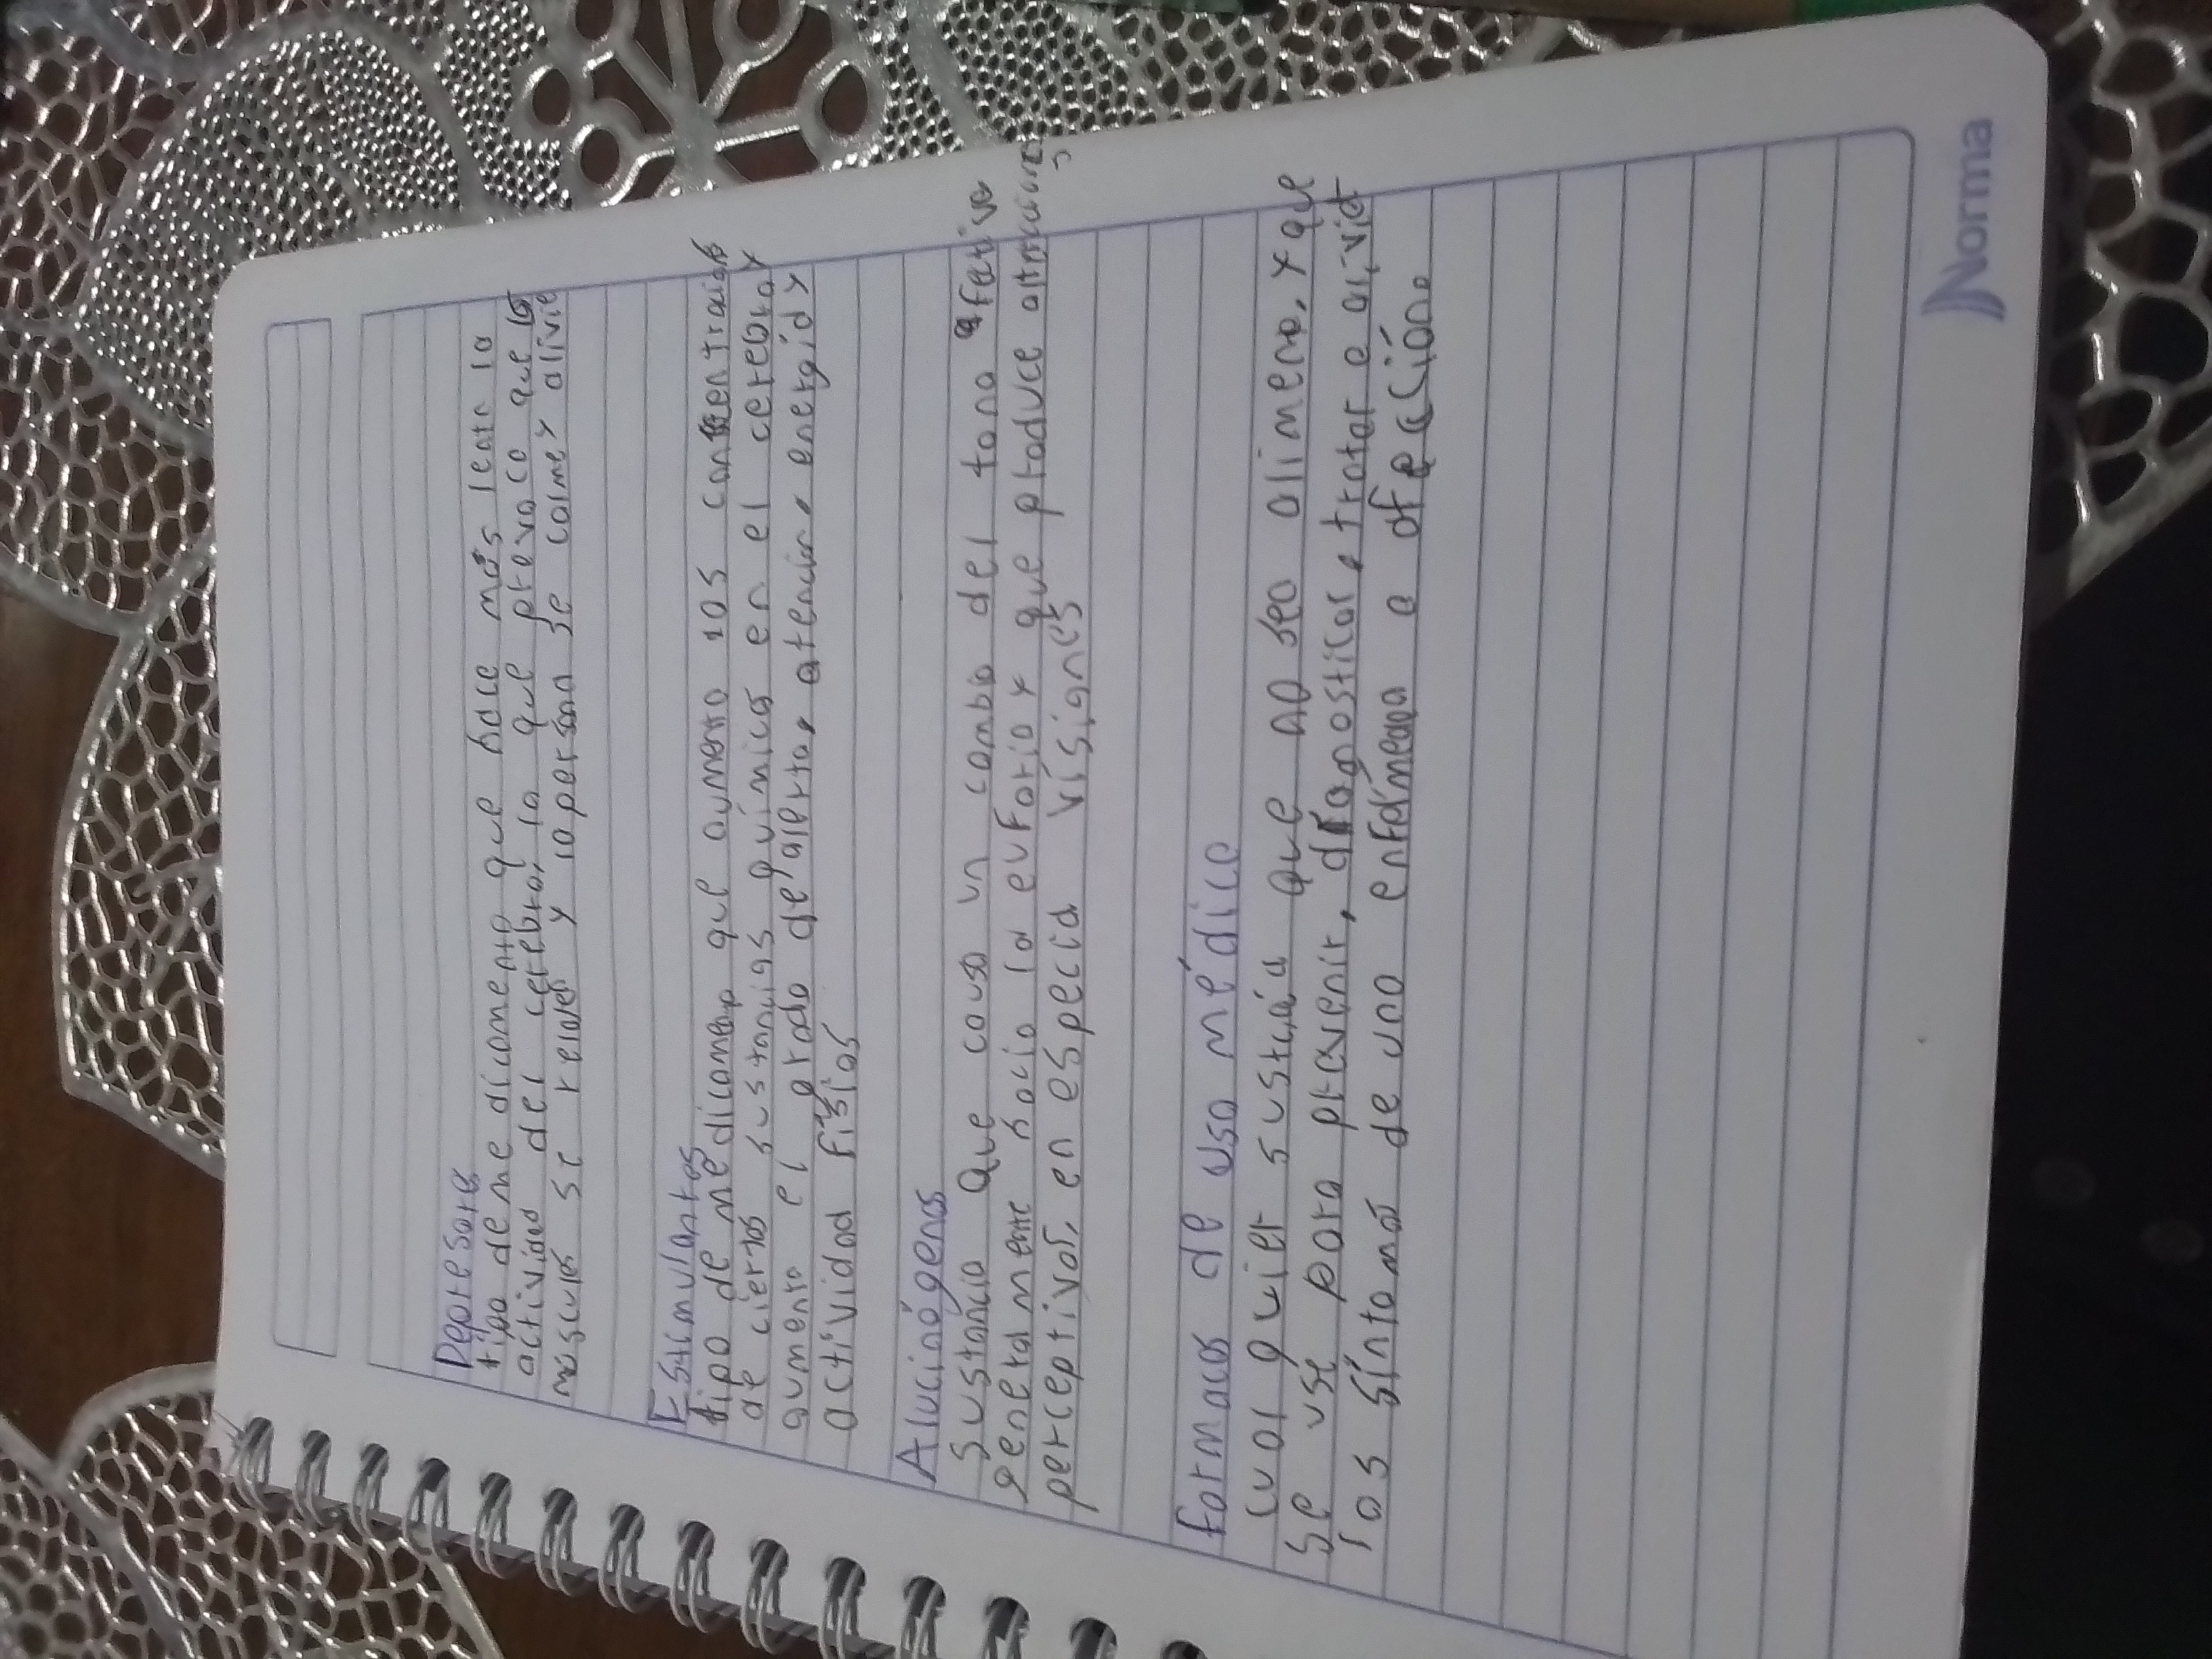 Depresore
tipo de me dicamento que hace más lento la
actividad del cerebro, lo que provoca que los
músculos se relajen y la persona se calme y alivie
Estimulantes
tipo de medicamento que aumenta las
de ciertas sustancias químicas en el cerebro y
aumenta el grado de alerta, atención, energía y
actividad físicas
Alucinógenos
Sustancia que causa un cambio del tono afectivo
generalmente hacia la euforia y que produce
perceptivas, en especia visiones
farmacos de uso médico
cual quier que no sea alimeno, y que
se use para prevenir, diagnosticar, tratar o
los síntomas de una o afección.
Norma